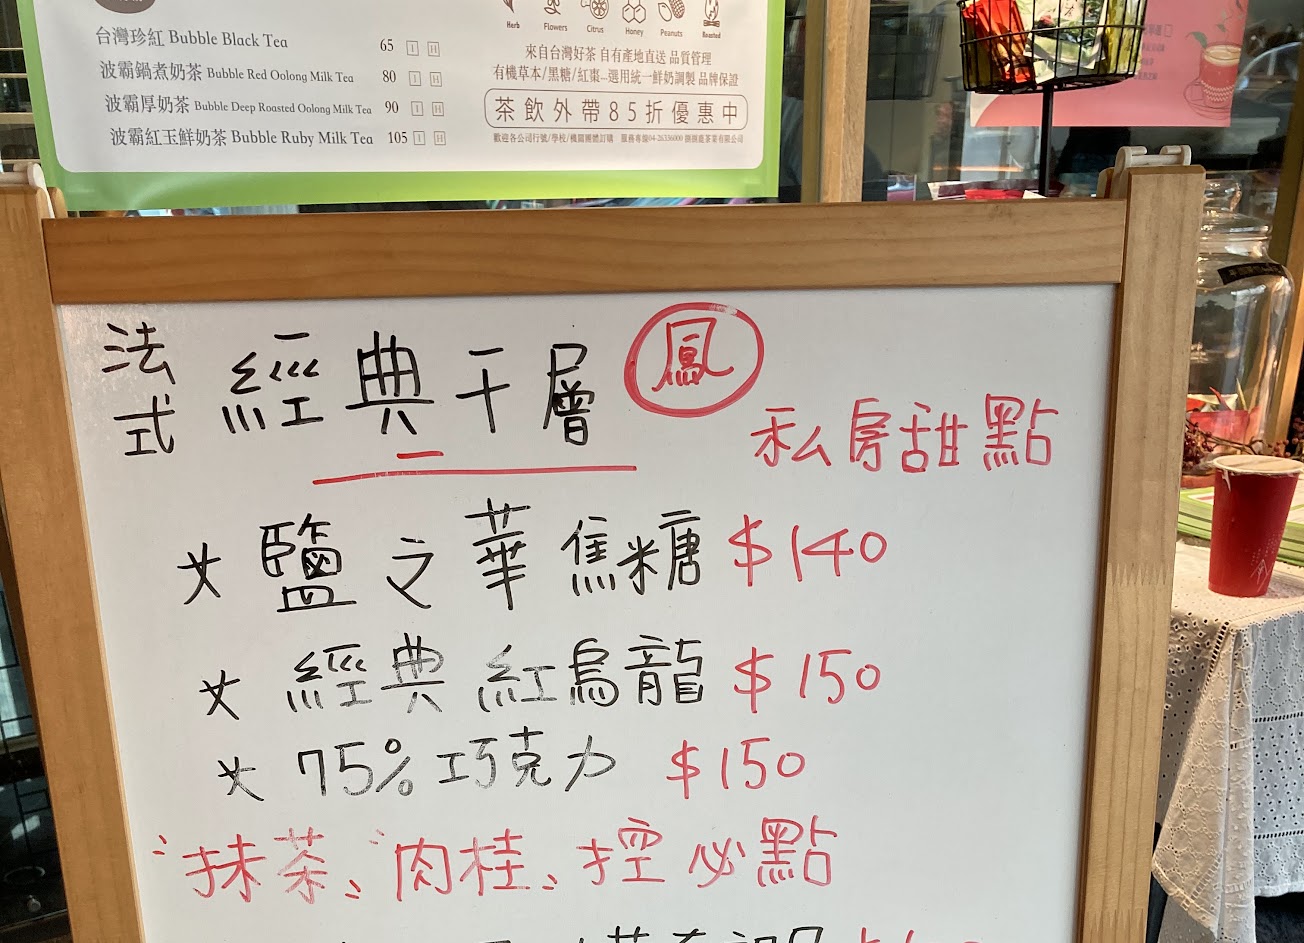 台灣珍紅 Bubble Black Tea 65 I H
波霸鍋煮奶茶 Bubble Red Oolong Milk Tea 80 I H
波霸厚奶茶 Bubble Deep Roasted Oolong Milk Tea 90 I H
波霸紅玉鮮奶茶 Bubble Ruby Milk Tea 105 I H
Herb Flowers Citrus Honey Peanuts Roasted
來自台灣好茶 自有產地直送 品質管理
有機草本/黑糖/紅棗...選用統一鮮奶調製 品牌保證
茶飲外帶85折優惠中
歡迎各公司行號/學校/機關團體訂購 服務專線04-26336000
法式 經典千層 鳳
私房甜點
鹽之華焦糖 $140
經典 紅烏龍 $150
75% 巧克力 $150
"抹茶" "肉桂" 控必點